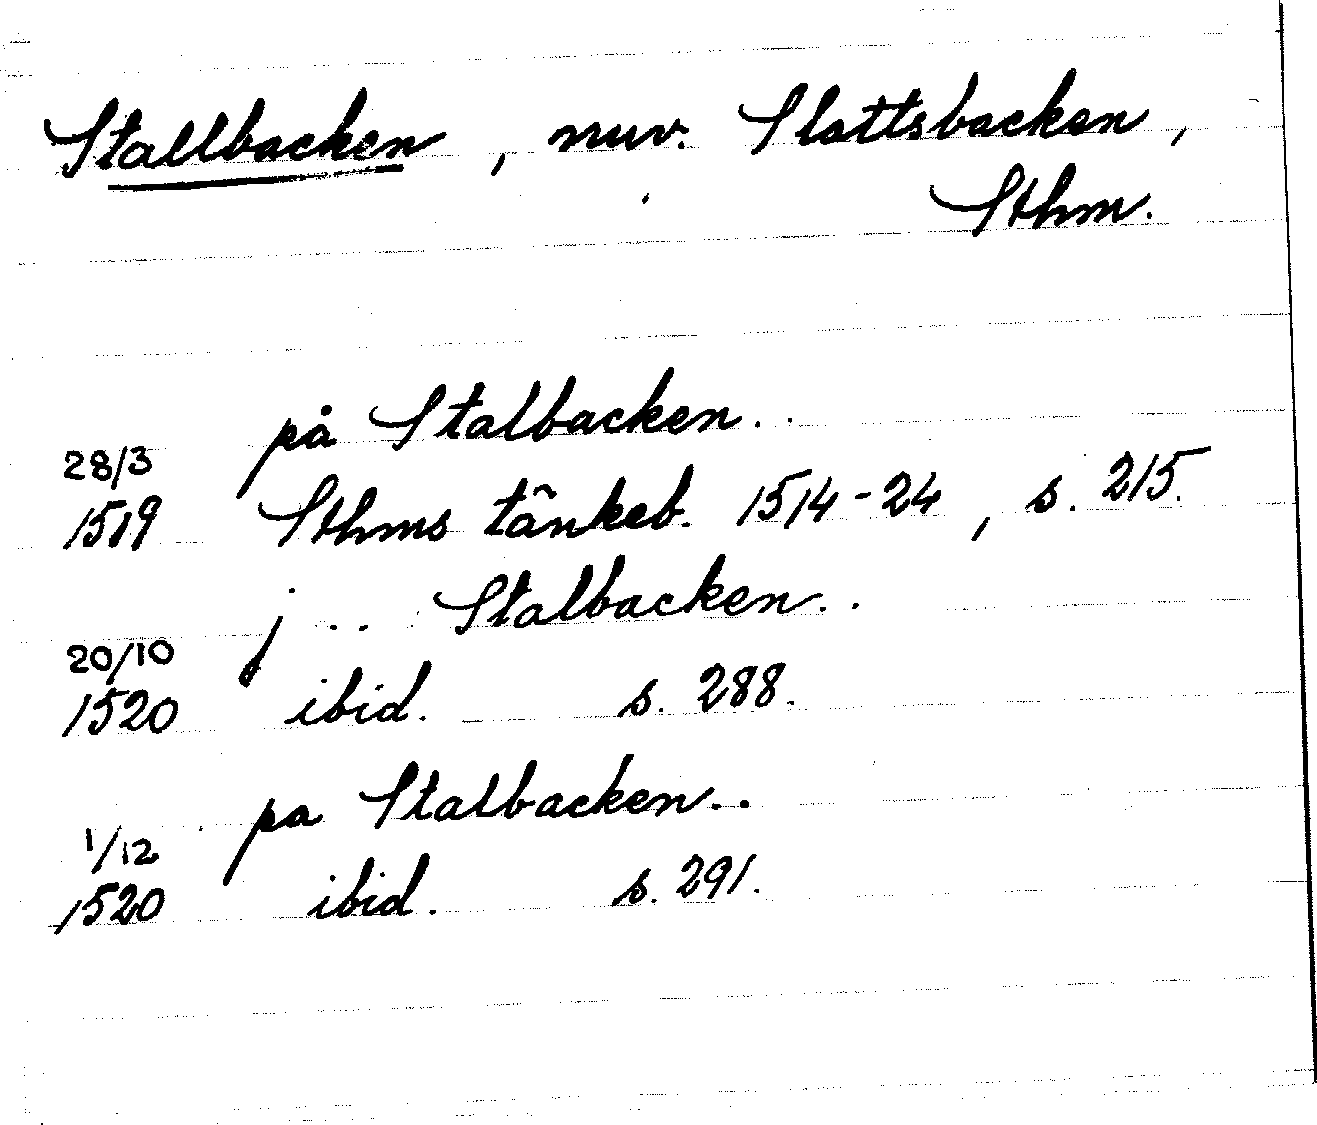 Stallbacken, nuv. Slottsbacken,
Sthm.
på Stalbacken..
28/3
1519 Sthms tänkeb. 1514-24, s. 215.
j .. Stalbacken..
20/10
1520 ibid. s. 288.
pa Stalbacken..
1/12
1520 ibid. s. 291.